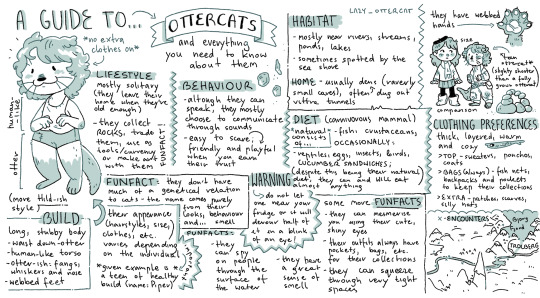 A GUIDE TO...
OTTERCATS
and everything
you need to know
about them
*no extra
clothes on*
human-like
otter
(more child-ish
style)
LIFESTYLE
mostly solitary
(they leave their
home when they're
old enough)
→ they collect
ROCKS, trade
them, use as
tools/currency
or make art
with them
FUNFACT
BEHAVIOUR
-although they can
speak, they mostly
choose to communicate
through sounds
- easy to scare,
friendly and playful
when you earn
their trust
FUNFACT
HABITAT
-mostly near rivers, streams,
ponds, lakes
-sometimes spotted by the
sea shore
HOME - usually dens (
small caves), often dug out
tunnels
LAZY_OTTERCAT
DIET (carnivorous mammal)
natural
consists
of...
- fish, crustaceans,
OCCASIONALLY:
- reptiles, eggs, insects, birds,
CUCUMBER SANDWICHES;
(despite this being their natural
diet, they can and will eat
almost anything
they have webbed
hands
size
comparison
*teen
ottercat*
(slightly shorter
than a fully
grown ottercat)
CLOTHING PREFERENCES
thick, layered, warm
and cozy
>TOP - sweaters, ponchos,
coats
>BAGS (always) - fish nets,
backpacks and pockets
to keep their collections
>EXTRA - patches, scarves,
silly hats
BUILD
long, stubby body
- waist down - otter
- human-like torso
- otter-ish: fangs,
whiskers and nose
- webbed feet
FUNFACT:
they don't have
much of a general relation
to cats - the name comes purely
from their
looks, behaviour
and... smell
their appearance
(hairstyles, size,
clothing, etc..
varies depending
on the individual
*given example is a
teen of healthy
build (name: Piper)
FUNFACTS:
- they
can spy
on people
through the
surface of
the water
WARNING
- do not let
one near your
fridge or it will
devour half of
it in a blink
of an eye!
- they have
a great
sense of
smell
some more FUNFACTS
- they can mesmerise
you using their cute,
shiny eyes
- their outfits always have
pockets, bags, etc.
for their collections
- they can squeeze
through very tight
spaces
X - ENCOUNTERS
TROLBERG